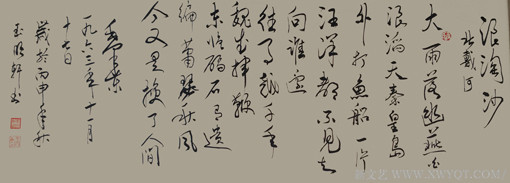 浪淘沙
北戴河
大雨落幽燕白
浪滔天秦皇岛
外打鱼船一片
汪洋都不见知
向谁边
往事越千年
魏武挥鞭
东临碣石有遗
编萧瑟秋风
今又是换了人间
毛泽东
一九六三年十一月
十七日
岁於丙申年秋
玉明轩书